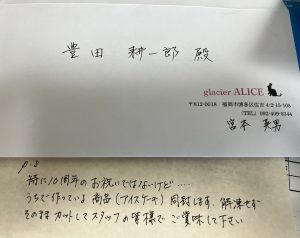 豊田 耕一郎 殿
glacier ALICE
〒812-0018 福岡市博多区住吉4-2-15-108
(TEL) 092-409-6344
宮本 英男
p.s
特に10周年のお祝いではないけど....
うちで作っている商品(アイスケーキ)同封します。解凍せず
そのままカットしてスタッフの皆様でご賞味して下さい